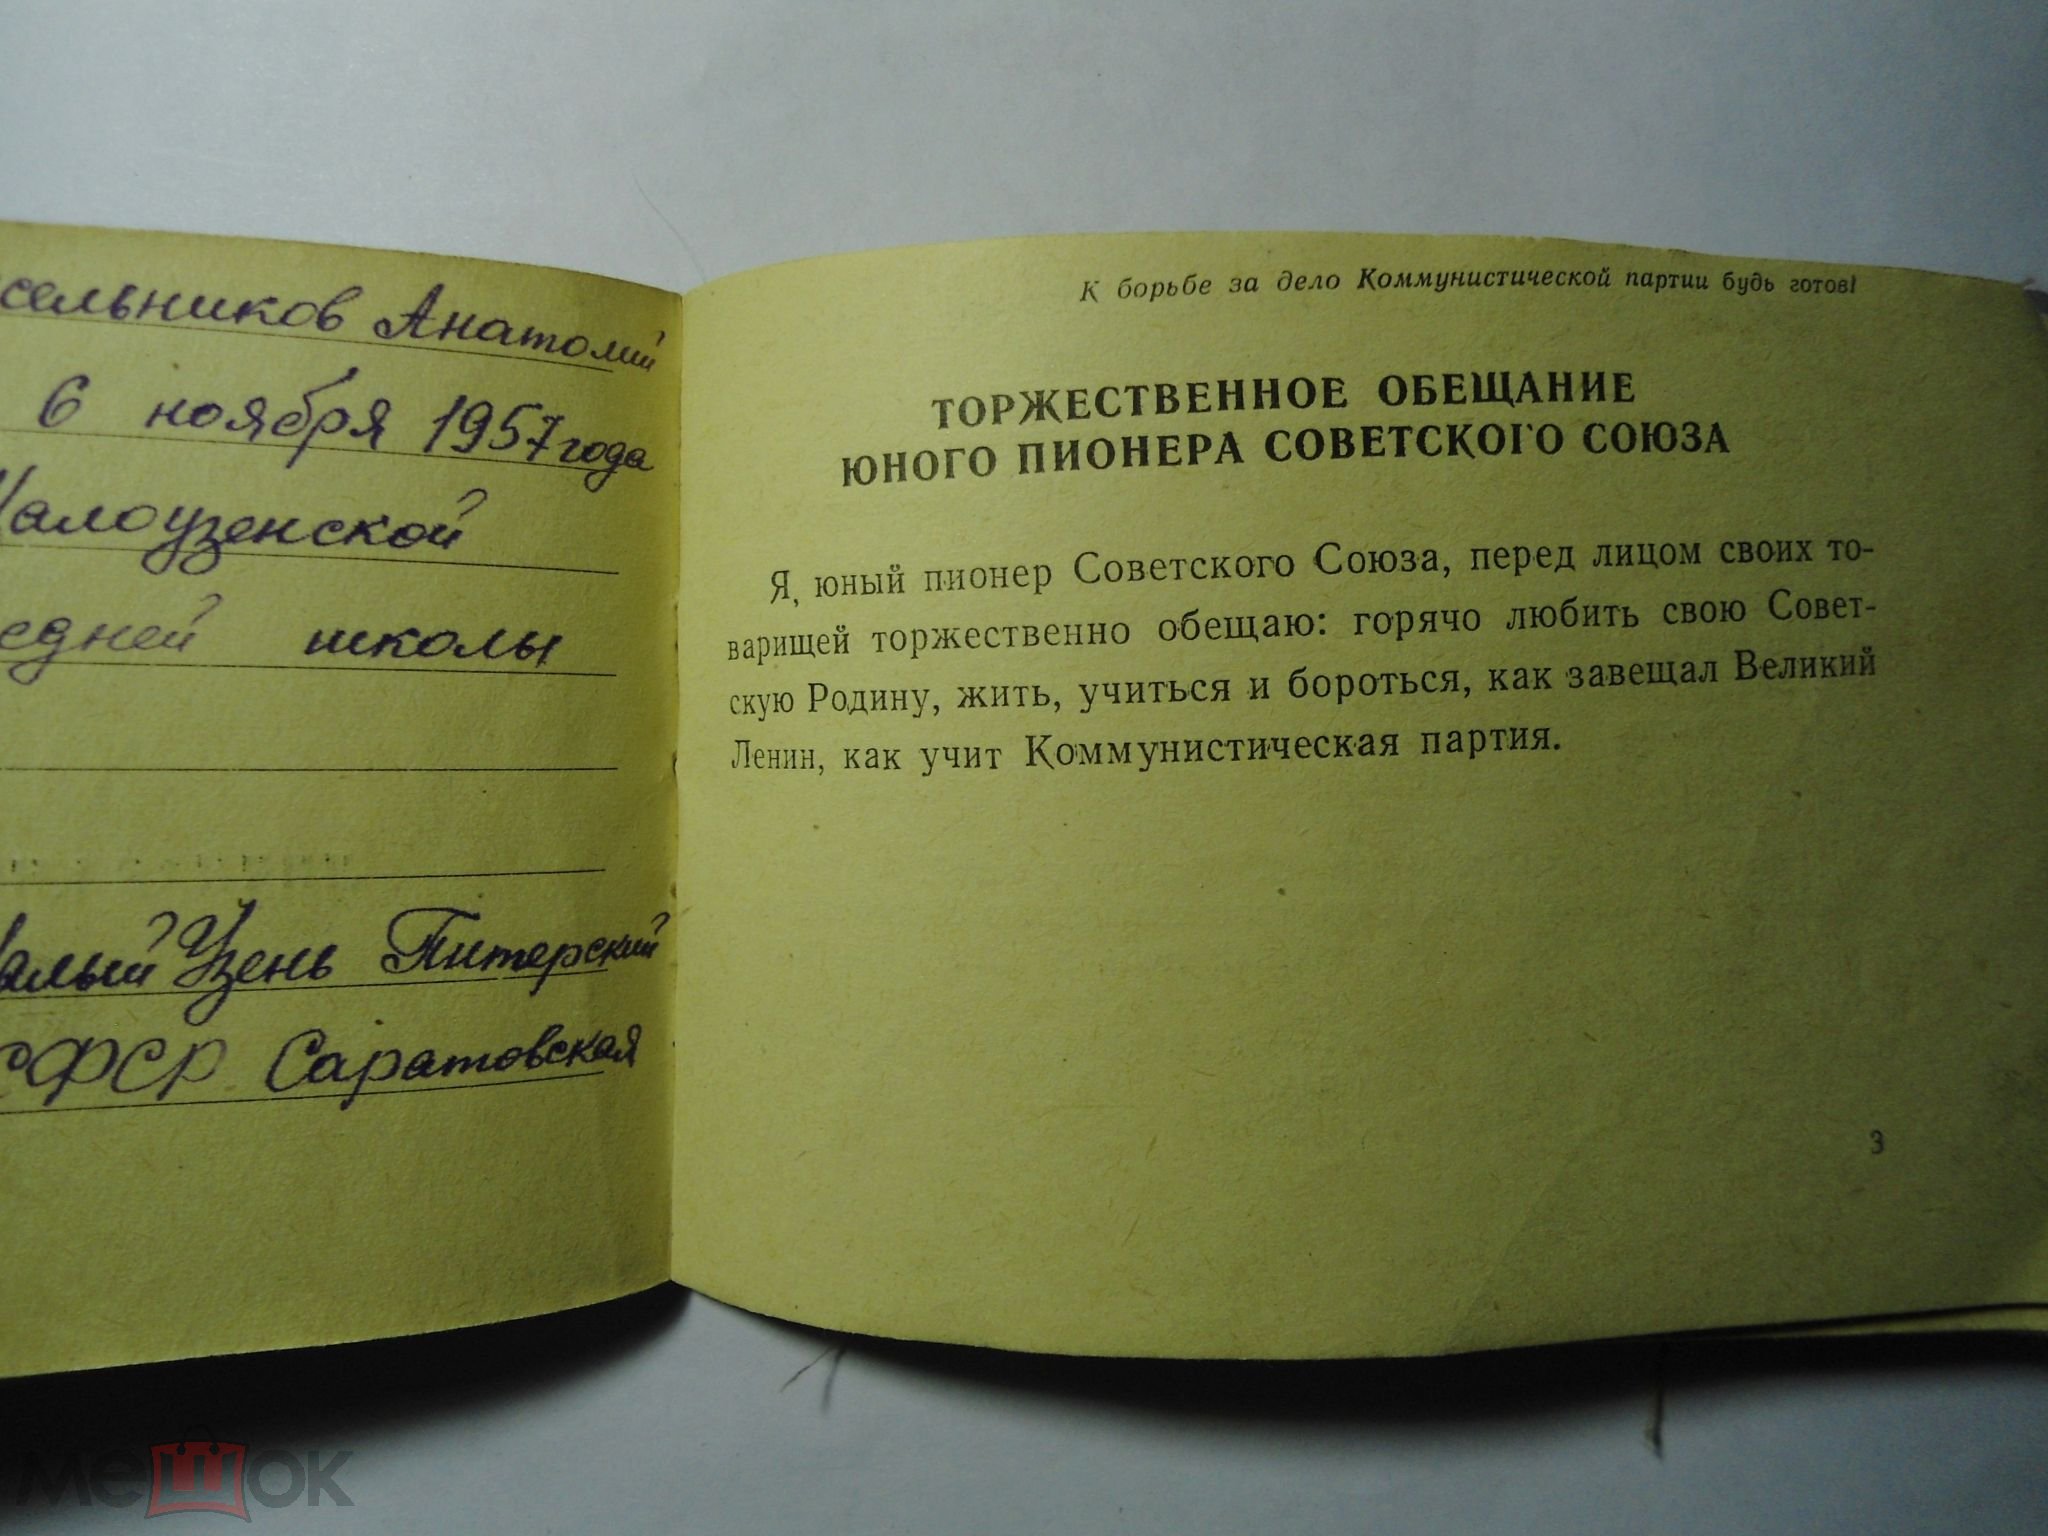 сельников Анатолий
6 ноября 1957 года
Малоузенской
едней школы
Малый Узень Питерский
СФСР Саратовская
К борьбе за дело Коммунистической партии будь готов!
ТОРЖЕСТВЕННОЕ ОБЕЩАНИЕ
ЮНОГО ПИОНЕРА СОВЕТСКОГО СОЮЗА
Я, юный пионер Советского Союза, перед лицом своих то-
варищей торжественно обещаю: горячо любить свою Совет-
скую Родину, жить, учиться и бороться, как завещал Великий
Ленин, как учит Коммунистическая партия.
3
мешок